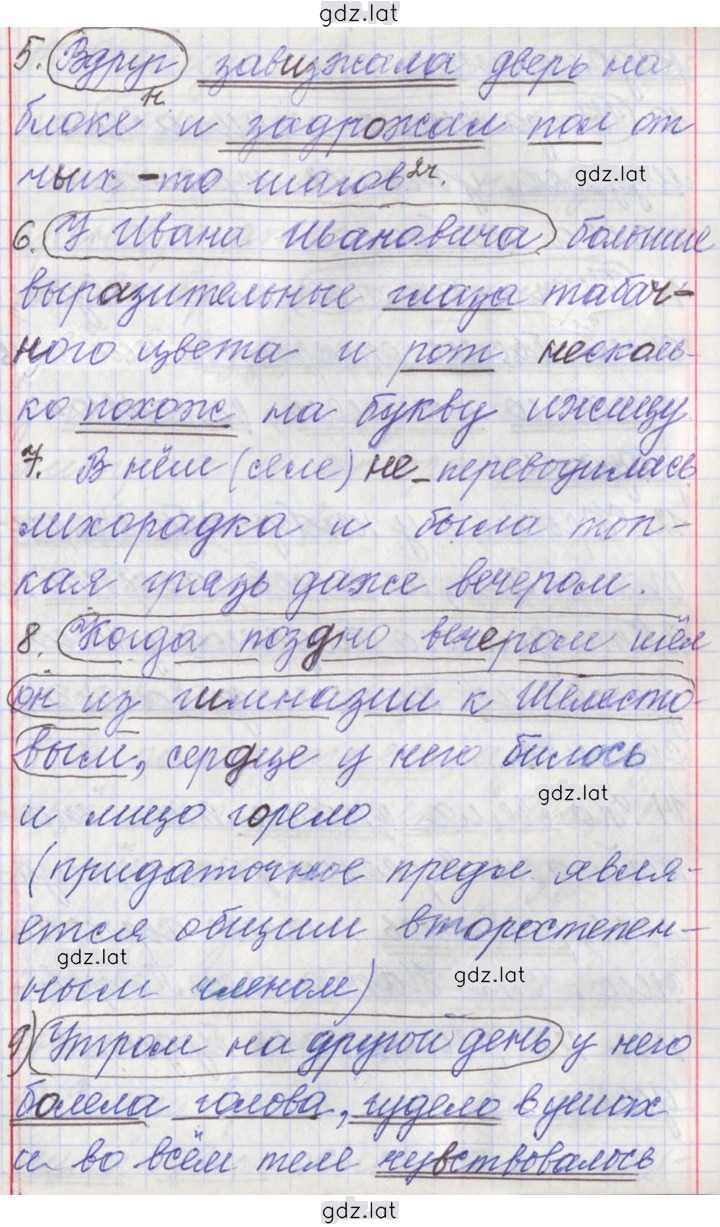 gdz.lat
5. Вдруг завизжала дверь на
блоке н. и задрожал пол от
чьих-то шагов 2ч.
gdz.lat
6. У Ивана Ивановича большие
выразительные глаза табач-
ного цвета и рот несколь-
ко похож на букву ижицу.
7. В нём (селе) не переводилась
лихорадка и была топ-
кая грязь даже вечером.
8. Когда поздно вечером шёл
он из гимназии к Шелесто-
вым, сердце у него билось
gdz.lat
и лицо горело
(придаточное предл. явля-
ется общим второстепен-
gdz.lat
ным членом)
gdz.lat
9) Утром на другой день у него
болела голова, гудело в ушах
и во всём теле чувствовалось
gdz.lat